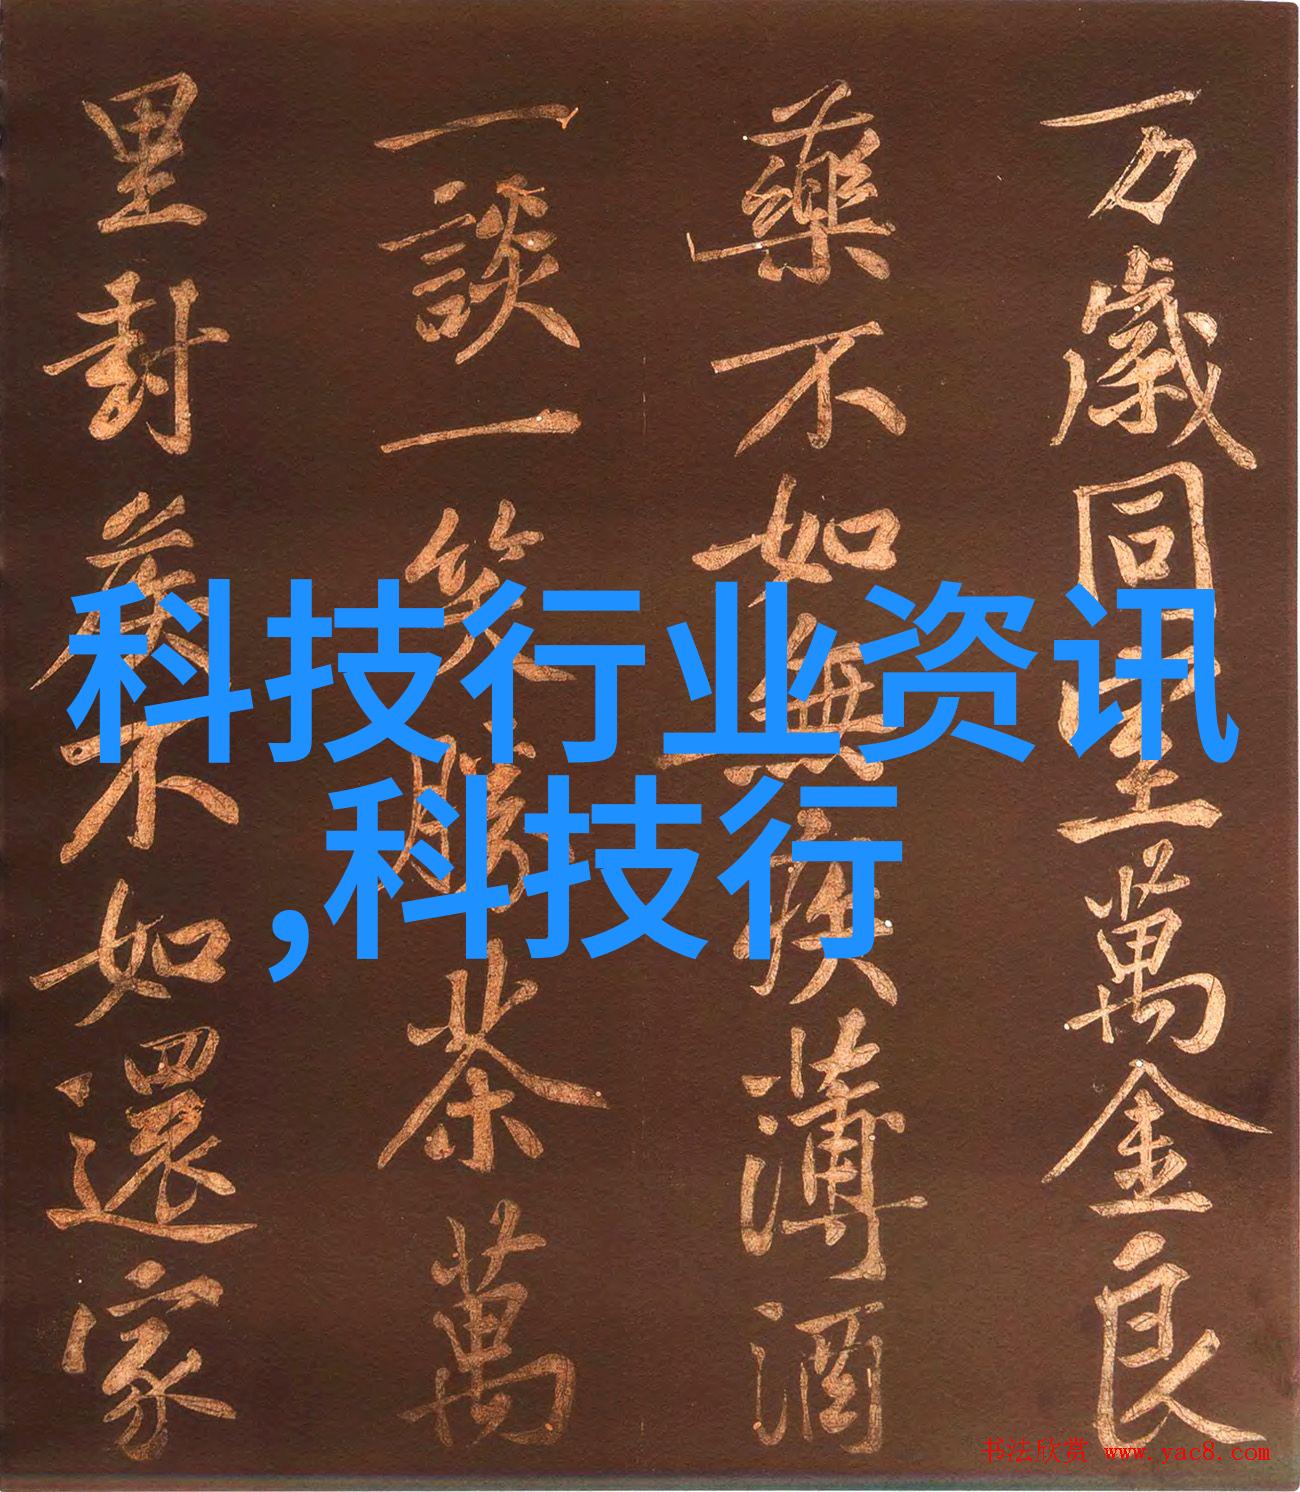 万歲同室萬金良
藥不如無疾薄酒
一談一笑勝茶萬
里封侯不如還家
科技行业资讯
,科技行
书法欣赏 www.yac8.com